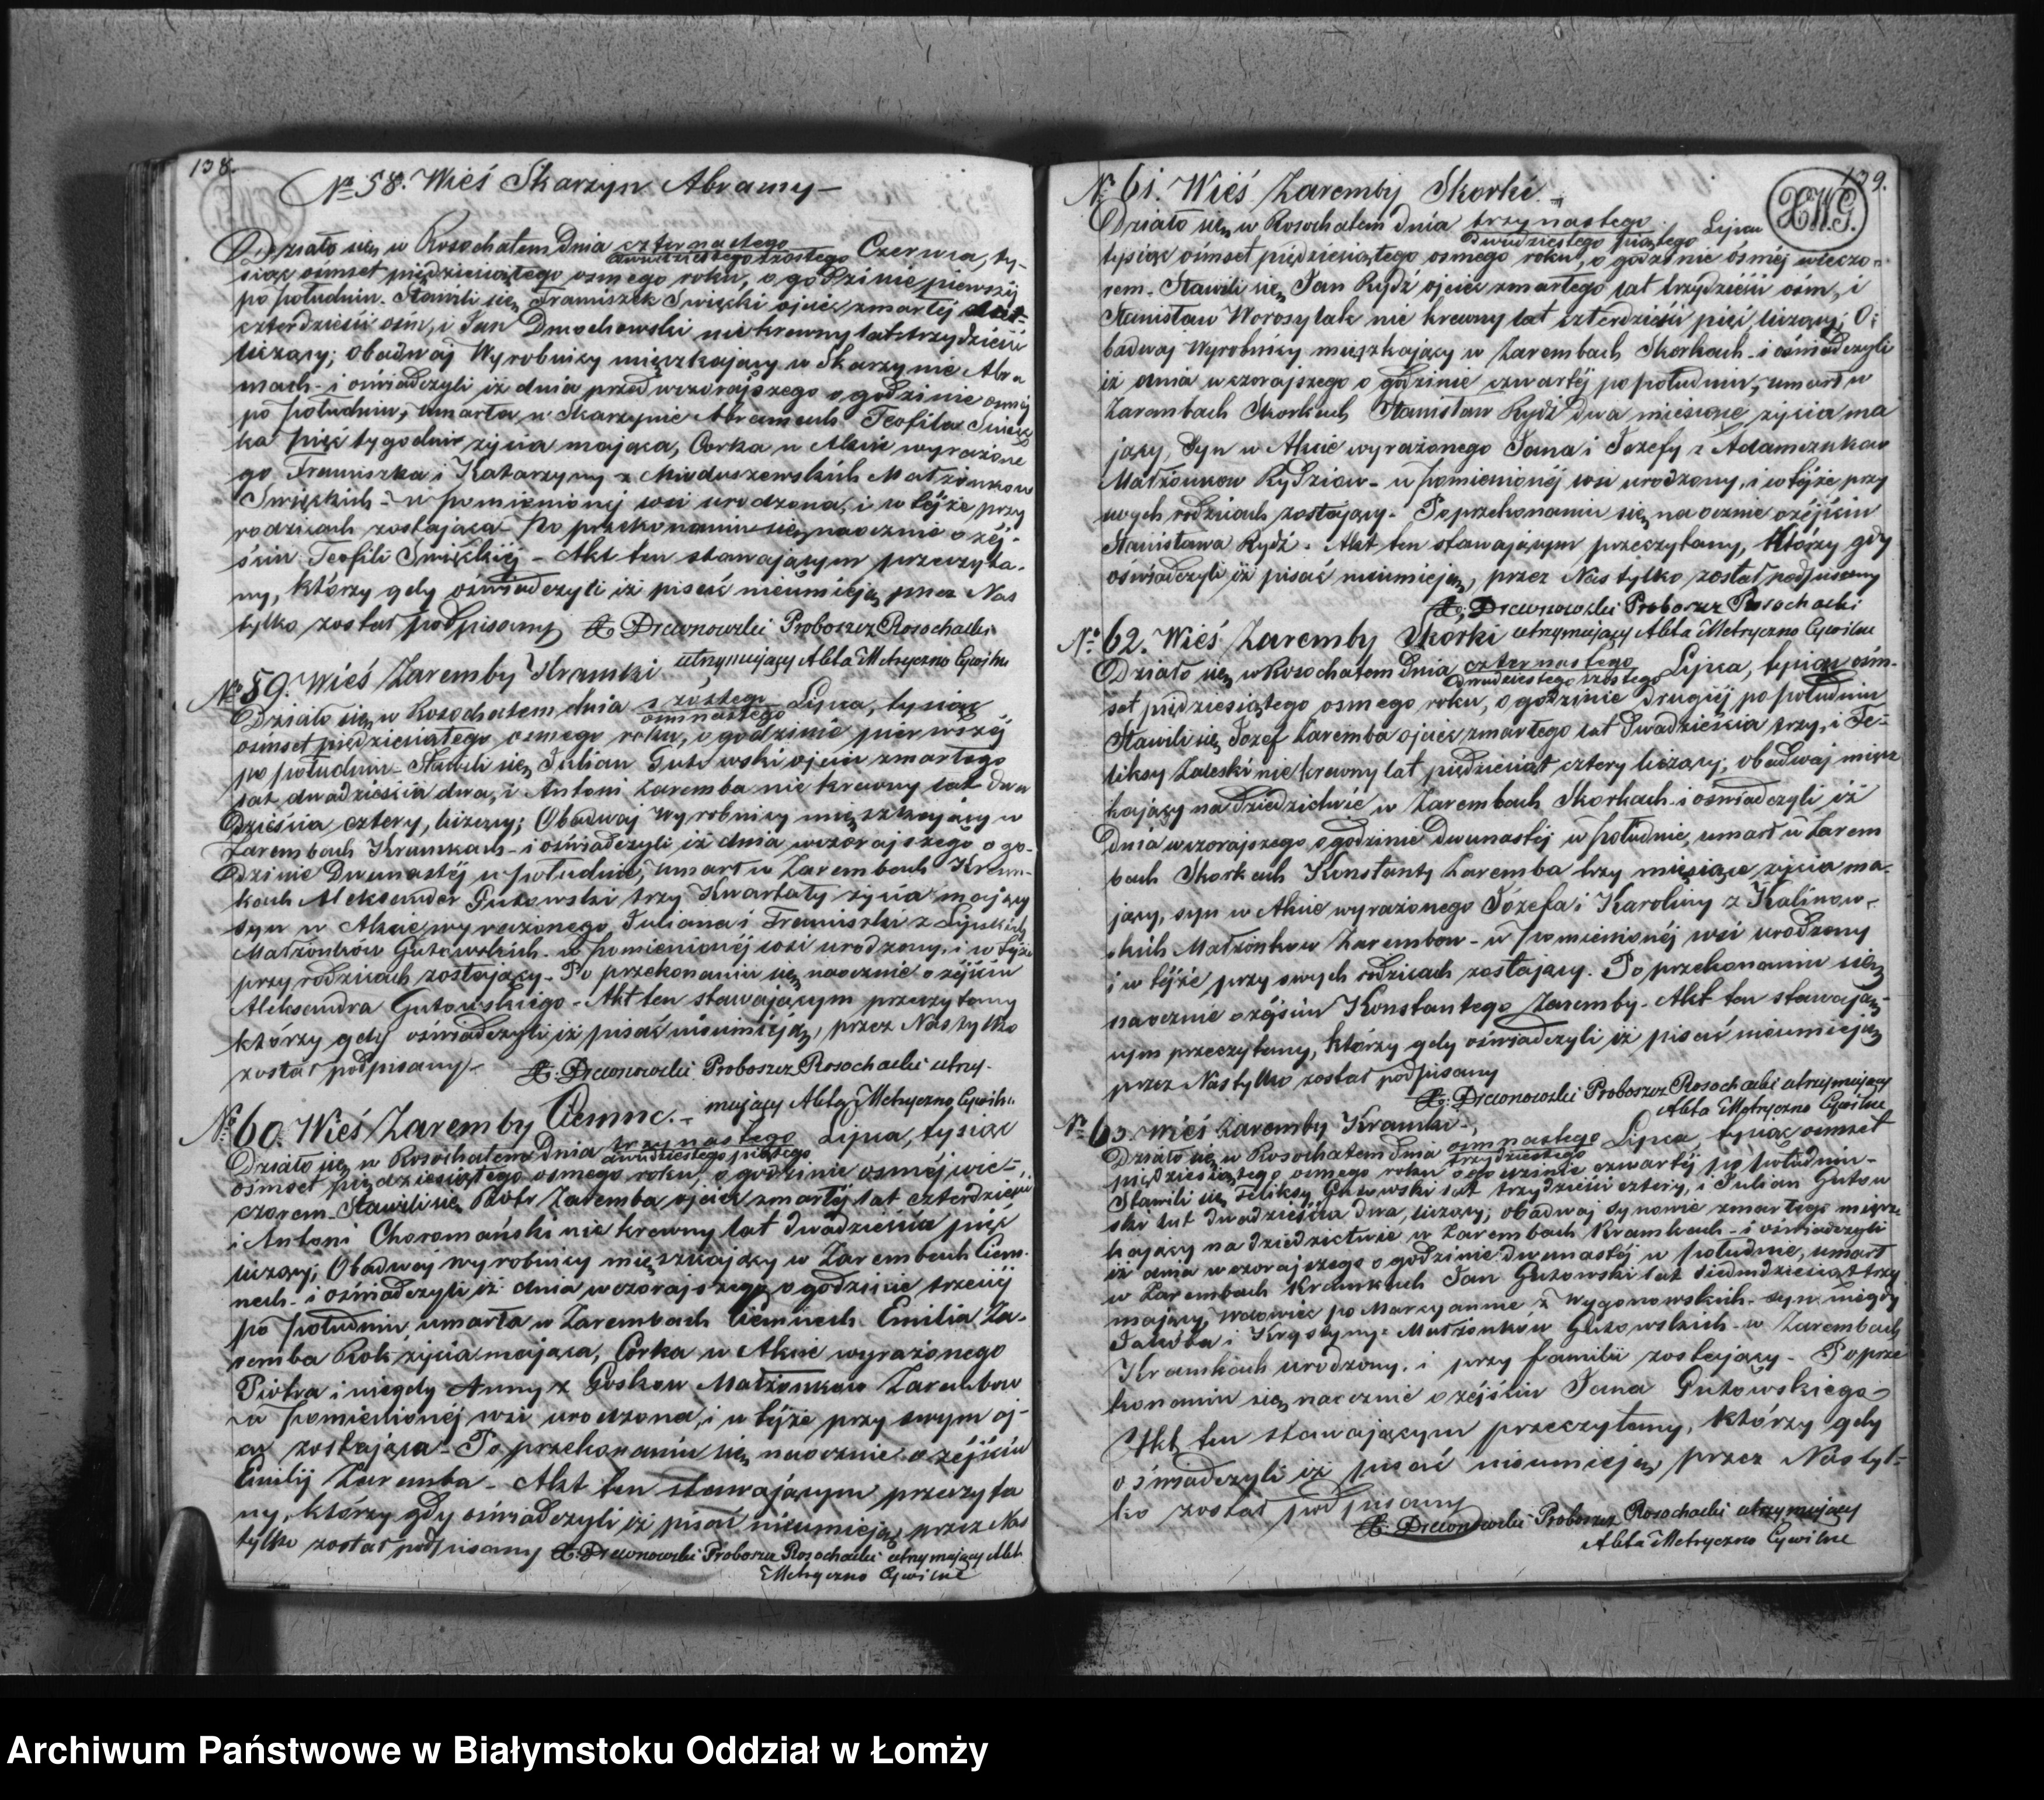 138.
№ 58. Wieś Skarzyn Abramy –
Działo się w Rosochatem Dnia czternastego Czerwca, ty-
dwudziestego szostego
siąc ośmset pięćdziesiątego osmego roku, o godzinie pierwszej
po południu. Stawili się Franciszek Swięcki ojciec zmarłej lat
czterdzieści ośm, i Jan Dmochowski nie krewny lat trzydzieści
liczący; obadwaj Wyrobnicy mięszkający w Skarzynie Abra
mach – i oświadczyli iż dnia przedwczorajszego o godzinie
po południu, umarła w Skarzynie Abramach Teofila Swięc
ka pięć tygodni życia mająca, Corka w Akcie wyrażone
go Franciszka i Katarzyny z Mieduszewskich Małżonkow
Swięckich – w pomienionej wsi urodzona, i w tejże przy
rodzicach zostająca – Po przekonaniu się naocznie o zej-
ściu Teofili Swięckiej – Akt ten stawającym przeczyta-
ny, którzy gdy oświadczyli iż pisać nieumieją, przez Nas
tylko został podpisany X. Drewnowski Proboszcz Rosochacki
utrzymujący Akta Metryczno Cywilne
№ 59. Wieś Zaremby Kramki
Działo się w Rosochatem dnia szostego Lipca, tysiąc
osmnastego
ośmset pięćdziesiątego osmego roku, o godzinie pierwszej
po południu – Stawili się Julian Gutowski ojciec zmarłego
lat dwadzieścia dwa, i Antoni Zaremba nie krewny lat dwa
dzieścia cztery, liczący; Obadwaj Wyrobnicy mięszkający w
Zarembach Kramkach – i oświadczyli iż dnia wczorajszego o go-
dzinie Dwunastej w południe, umarł w Zarembach Kram-
kach Aleksander Gutowski trzy Kwartały życia mający
syn w Akcie wyrażonego Juliana i Franciszki z Lipskich
Małżonków Gutowskich – w pomienionej wsi urodzony, i w tejże
przy rodzicach zostający – Po przekonaniu się naocznie o zejściu
Aleksandra Gutowskiego – Akt ten stawającym przeczytany
którzy gdy oświadczyli iż pisać nieumieją, przez Nas tylko
został podpisany – X. Drewnowski Proboszcz Rosochacki utrzy-
mujący Akta Metryczno Cywilne
№ 60. Wieś Zaremby Ciemne. –
Działo się w Rosochatem Dnia trzynastego Lipca, tysiąc
dwudziestego piątego
ośmset pięćdziesiątego osmego roku, o godzinie osmej wie-
czorem – Stawili się Piotr Zaremba ojciec zmarłej lat czterdzieści
i Antoni Choromański nie krewny lat dwadzieścia pięć
liczący; Obadwaj wyrobnicy mięszkający w Zarembach Ciem-
nech – i oświadczyli iż dnia wczorajszego o godzinie trzeciej
po południu, umarła w Zarembach Ciemnech Emilia Za-
remba Rok życia mająca, Corka w Akcie wyrażonego
Piotra i niegdy Anny z Małżonkow Zarembow
– w pomienionej wsi urodzona, i w tejże przy swym oj-
cu zostająca – Po przekonaniu się naocznie o zejściu
Emilij Zaremba – Akt ten stawającym przeczyta
ny, którzy gdy oświadczyli iż pisać nieumieją, przez Nas
tylko został podpisany X. Drewnowski Proboszcz Rosochacki utrzymujący Akta
Metryczno Cywilne
139.
№ 61. Wieś Zaremby Skorki –
Działo się w Rosochatem dnia trzynastego Lipca
dwudziestego piątego
tysiąc ośmset pięćdziesiątego osmego roku, o godzinie ósmej wieczo-
rem – Stawili się Jan Rydź ojciec zmarłego lat trzydzieści ośm, i
Stanisław Worosylak nie krewny lat czterdzieści pięć liczący; O-
badwaj Wyrobnicy mięszkający w Zarembach Skorkach – i oświadczyli
iż dnia wczorajszego o godzinie czwartej po południu, umarł w
Zarembach Skorkach Stanisław Rydź dwa miesiące życia ma
jący, Syn w Akcie wyrażonego Jana i Jozefy z Adamczukow
Małżonkow Rydziow – w pomienionej wsi urodzony, i w tejże przy
swych rodzicach zostający – Po przekonaniu się naocznie o zejściu
Stanisława Rydź – Akt ten stawającym przeczytany, Którzy gdy
oświadczyli iż pisać nieumieją, przez Nas tylko został podpisany
X. Drewnowski Proboszcz Rosochacki
№ 62. Wieś Zaremby Skorki utrzymujący Akta Metryczno Cywilne
Działo się w Rosochatem Dnia czternastego Lipca, tysiąc ośm-
dwudziestego szostego
set pięćdziesiątego osmego roku, o godzinie drugiej po południu
Stawili się Jozef Zaremba ojciec zmarłego lat dwadzieścia trzy, i Fe-
liksy Zaleski nie krewny lat pięćdziesiąt cztery liczący; obadwaj mięsz
kający na dziedzictwie w Zarembach Skorkach – i oświadczyli iż
Dnia wczorajszego o godzinie Dwunastej w południe, umarł w Zarem
bach Skorkach Konstanty Zaremba trzy miesiące życia ma-
jący, syn w Akcie wyrażonego Józefa i Karoliny z Kalinow-
skich Małżonkow Zarembow – w pomienionej wsi urodzony
i w tejże przy swych rodzicach zostający. Po przekonaniu się
naocznie o zejściu Konstantego Zaremby – Akt ten stawają-
cym przeczytany, którzy gdy oświadczyli iż pisać nieumieją
przez Nas tylko został podpisany
X. Drewnowski Proboszcz Rosochacki utrzymujący
Akta Metryczno Cywilne
№ 63. Wieś Zaremby Kramki –
Działo się w Rosochatem Dnia osmnastego Lipca, tysiąc ośmset
trzydziestego
pięćdziesiątego osmego roku o godzinie czwartej po południu –
Stawili się Feliksy Gutowski lat trzydzieści cztery, i Julian Gutow
ski lat dwadzieścia dwa, liczący; obadwaj synowie zmarłego mięsz
kający na dziedzictwie w Zarembach Kramkach – i oświadczyli
iż dnia wczorajszego o godzinie dwunastej w południe, umarł
w Zarembach Kramkach Jan Gutowski lat siedmdziesiąt trzy
mający, wdowiec po Maryannie z Wygonowskich – syn niegdy
Jakóba i Krystyny Małżonkow Gutowskich – w Zarembach
Kramkach urodzony, i przy familii zostający – Po prze
konaniu się naocznie o zejściu Jana Gutowskiego –
Akt ten stawającym przeczytany, którzy gdy
oświadczyli iż pisać nieumieją, przez Nas tyl-
ko został podpisany
X. Drewnowski Proboszcz Rosochacki utrzymujący
Akta Metryczno Cywilne
Archiwum Państwowe w Białymstoku Oddział w Łomży